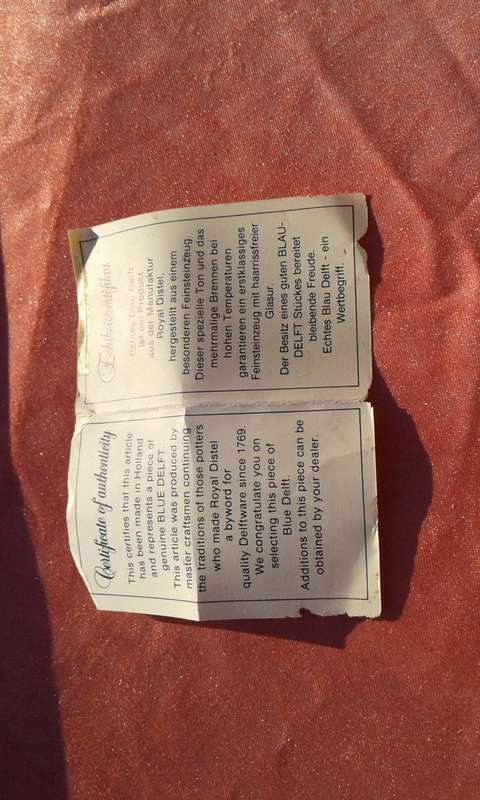 Certificate of authenticity
This certifies that this article
has been made in Holland
and represents a piece of
genuine BLUE DELFT.
This article was produced by
master craftsmen continuing
the traditions of those potters
who made Royal Distel
a byword for
quality Delftware since 1769.
We congratulate you on
selecting this piece of
Blue Delft.
Additions to this piece can be
obtained by your dealer.
Echtheitszertifikat
Echtes Blau Delft
ist ein Produkt
aus der Manufaktur
Royal Distel,
hergestellt aus einem
besonderen Feinsteinzeug.
Dieser spezielle Ton und das
mehrmalige Brennen bei
hohen Temperaturen
garantieren ein erstklassiges
Feinsteinzeug mit haarrissfreier
Glasur.
Der Besitz eines guten BLAU-
DELFT Stückes bereitet
bleibende Freude.
Echtes Blau Delft - ein
Wertbegriff.